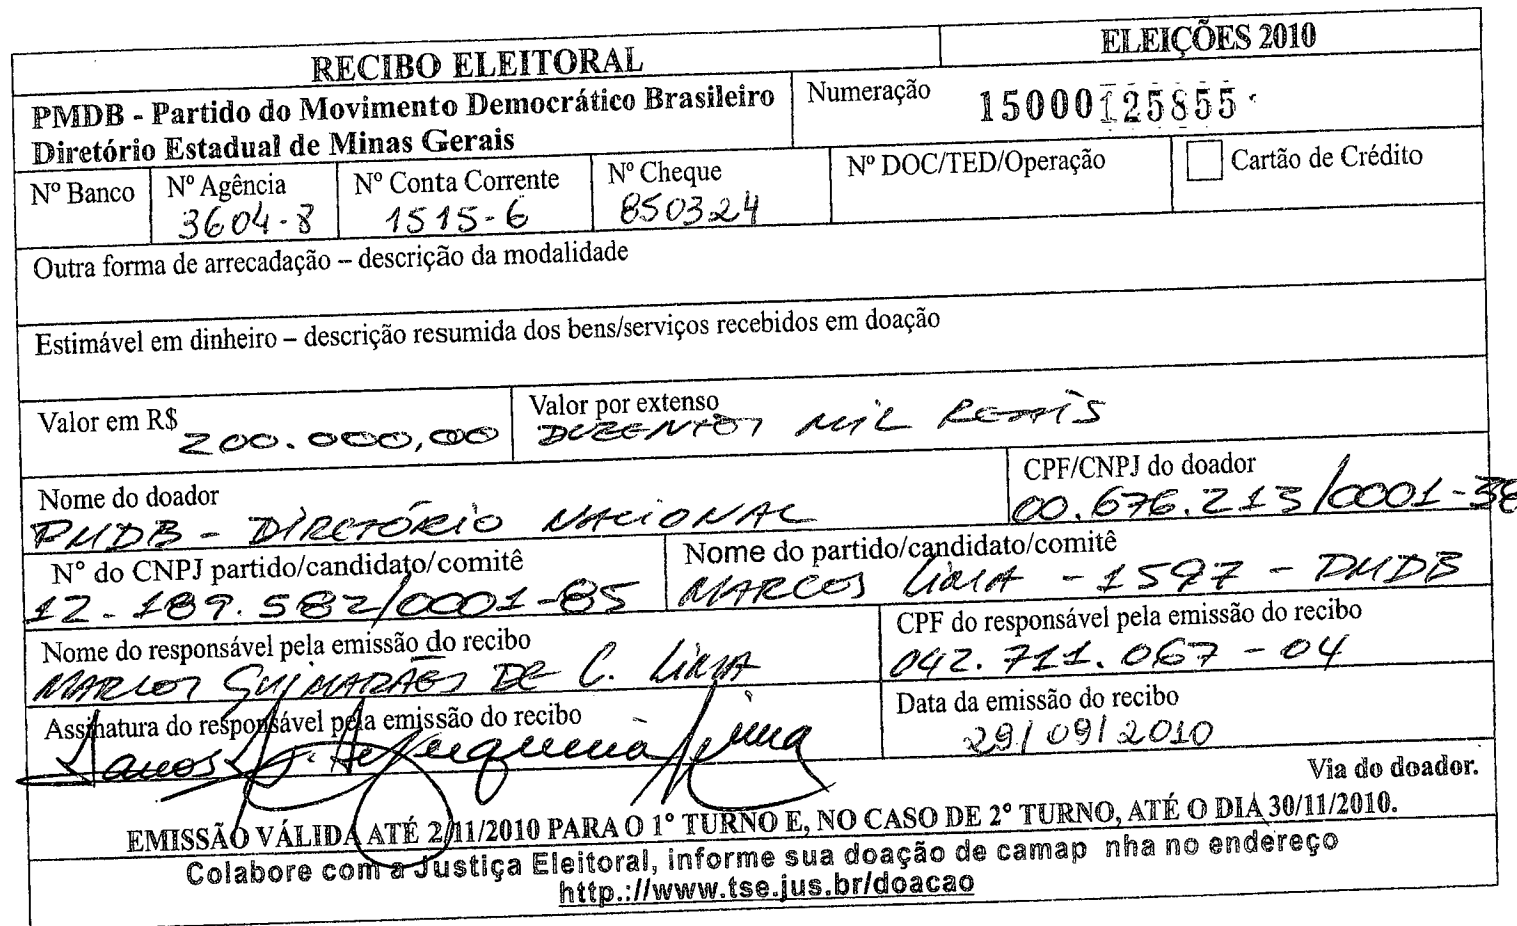 RECIBO ELEITORAL
ELEIÇÕES 2010
PMDB - Partido do Movimento Democrático Brasileiro
Diretório Estadual de Minas Gerais
Numeração
15000125855
Nº Banco
Nº Agência
3604-8
Nº Conta Corrente
1515-6
Nº Cheque
850324
Nº DOC/TED/Operação
Cartão de Crédito
Outra forma de arrecadação – descrição da modalidade
Estimável em dinheiro – descrição resumida dos bens/serviços recebidos em doação
Valor em R$
200.000,00
Valor por extenso
DUZENTOS MIL REAIS
Nome do doador
PMDB - DIRETÓRIO NACIONAL
CPF/CNPJ do doador
00.676.213/0001-38
N° do CNPJ partido/candidato/comitê
12.189.582/0001-85
Nome do partido/candidato/comitê
MARCOS LIMA - 1597 - PMDB
Nome do responsável pela emissão do recibo
MARCOS GUIMARÃES DE C. LIMA
CPF do responsável pela emissão do recibo
042.711.067-04
Assinatura do responsável pela emissão do recibo
Data da emissão do recibo
29/09/2010
Via do doador.
EMISSÃO VÁLIDA ATÉ 2/11/2010 PARA O 1º TURNO E, NO CASO DE 2º TURNO, ATÉ O DIA 30/11/2010.
Colabore com a Justiça Eleitoral, informe sua doação de camap nha no endereço
http.://www.tse.jus.br/doacao